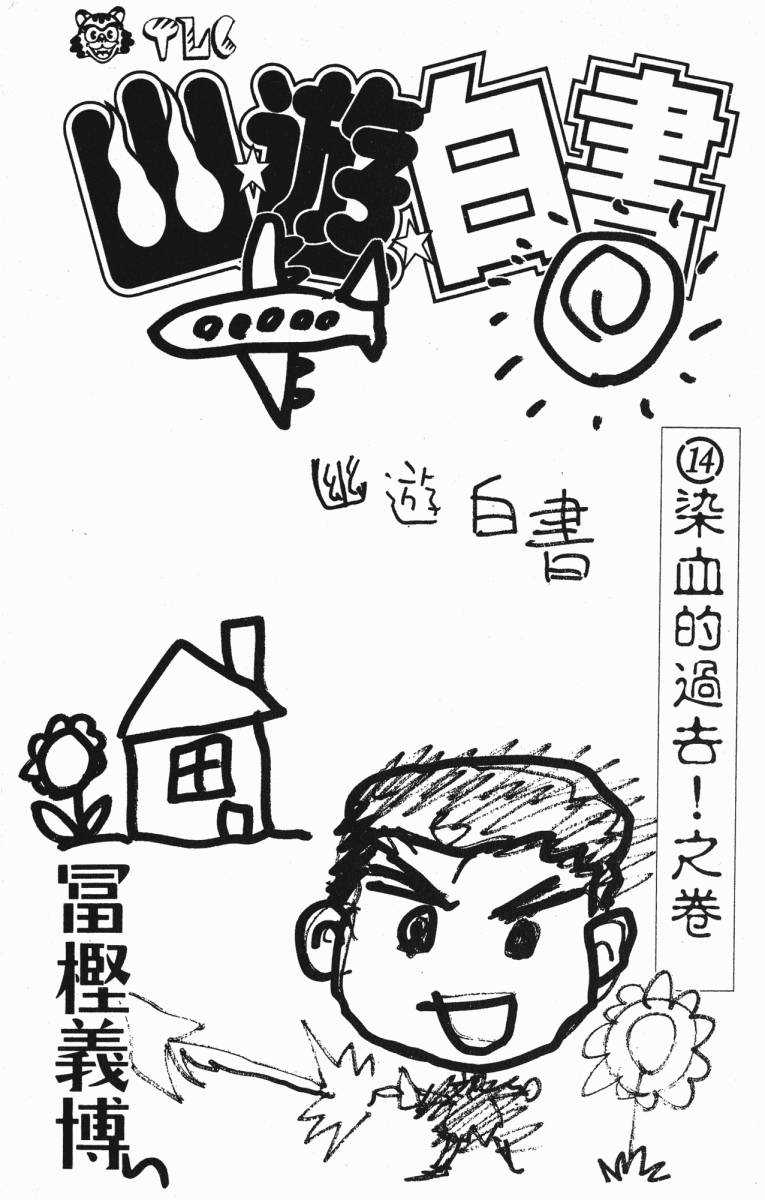 TLC
幽遊白書
幽遊白書
⑭染血的過去!之卷
冨樫義博